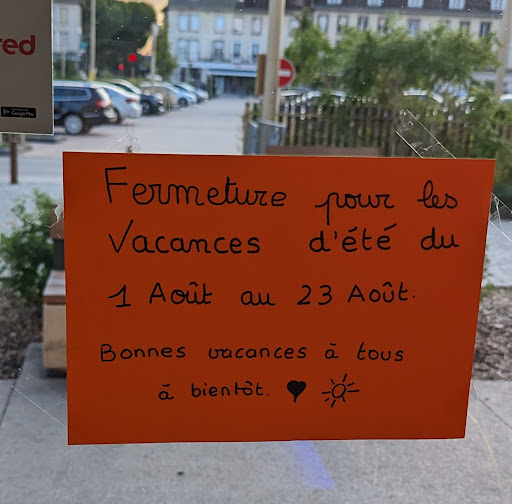 red
Google Play
Fermeture pour les
Vacances d'été du
1 Août au 23 Août.
Bonnes vacances à tous
à bientôt.